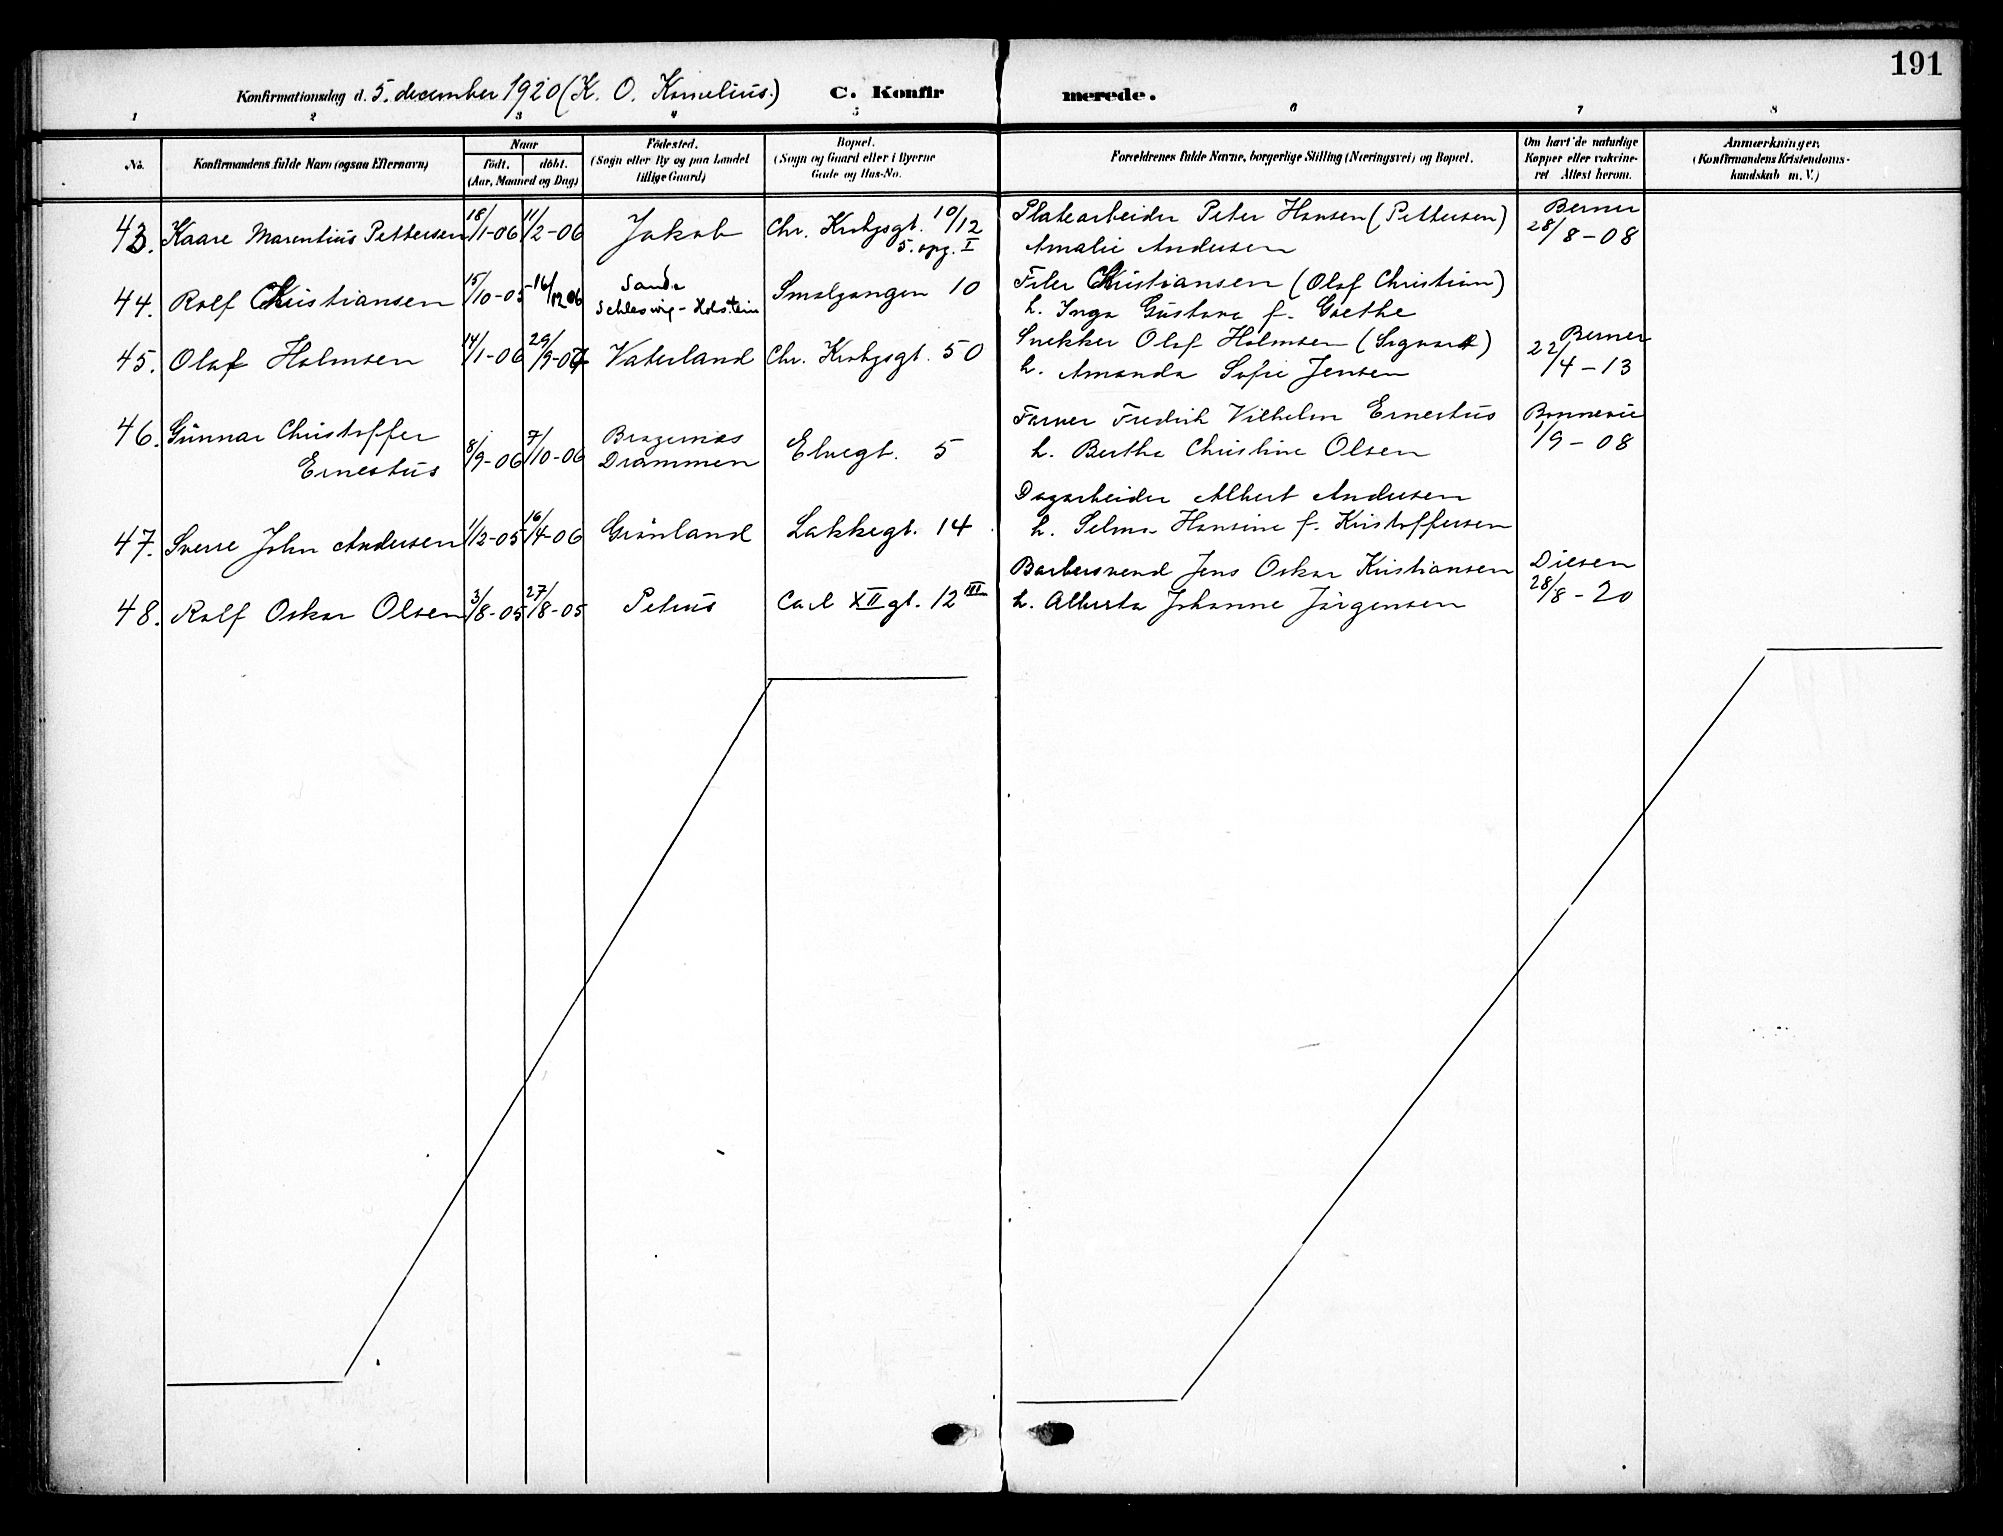 191
Konfirmationsdag d. 5. december 1920 (K. O. Kornelius.) C. Konfirmerede.
1 2 3 4 5 6 7 8
No. Konfirmandens fulde Navn (ogsaa Efternavn) Naar födt. döbt. (Aar, Maaned og Dag) Födested. (Sogn eller By og paa Landet tillige Gaard) Bopæl. (Sogn og Gaard eller i Byerne Gade og Hus-No. Forældrenes fulde Navne, borgerlige Stilling (Næringsvei) og Bopæl. Om havt de naturlige Kopper eller vakcineret Attest herom. Anmærkninger, (Konfirmandens Kristendomskundskab m. V.)
43. Kaare Marentius Pettersen 18/1-06 11/2-06 Jakob Chr. Krohgsgt. 10/12 Platearbeider Peter Hansen (Pettersen) Berner
5. opg. I Amalie Andersen 28/8-08
44. Rolf Christiansen 15/10-05 -16/12 06 Sande Schleswig-Holstein Smalgangen 10 Filer Christiansen (Olaf Christian)
h. Inga Gustava f. Goethe
45. Olaf Holmsen 14/1-06 29/9-07 Vaterland Chr. Krohgsgt. 50 Snekker Olaf Holmsen (Sigvart) Berner
h. Amanda Sofie Jensen 22/4-13
46. Gunnar Christoffer Farver Fredrik Vilhelm Ernestus Bonnevie
Ernestus 8/9-06 7/10-06 Bragernæs Drammen Elvegt. 5 h. Bertha Christine Olsen 1/9-08
Dagarbeider Albert Andersen
47. Sverre John Andersen 1/12-05 16/4-06 Grönland Lakkegt. 14 h. Selma Hansine f. Kristoffersen
Barbersvend Jens Oskar Kristiansen Diesen
48. Rolf Oskar Olsen 3/8-05 27/8-05 Petrus Carl XII gt. 12 III h. Alberta Johanne Jörgensen 28/8-20